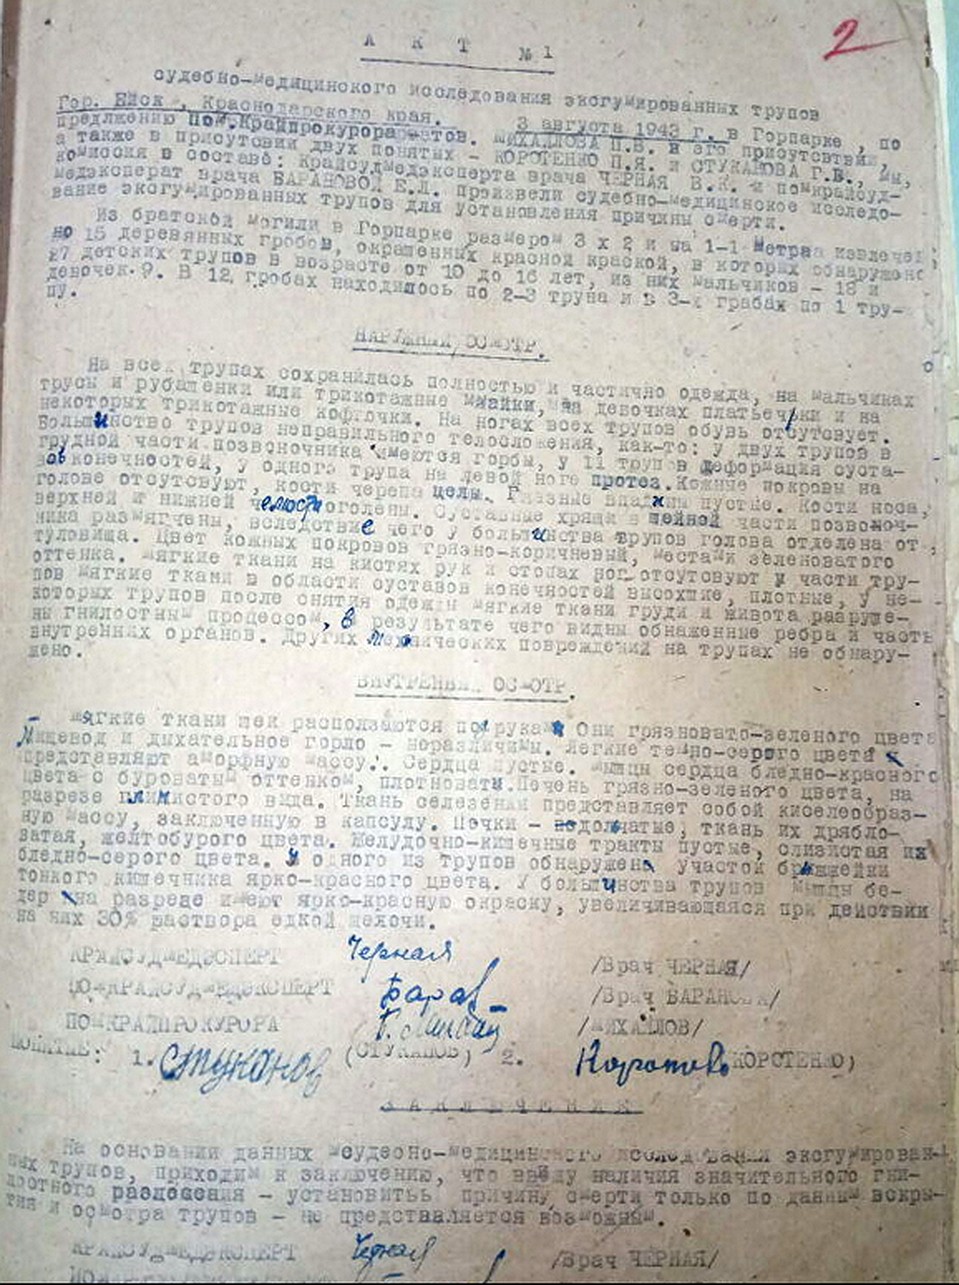 2
А К Т №1
судебно-медицинского исследования эксгумированных трупов
Гор. Ейск, Краснодарского края. 3 августа 1943 г. в Горпарке, по
предлжению Пом.Крайпрокурора МИХАЙЛОВА П.В. и его присутствии,
а также в присутсвии двух понятых - КОРОТЕНКО П.Я. и СТУКАНОВА Г.В., мы,
комиссия в составе: Крайсудмедэксперта врача ЧЕРНАЯ В.К. и помкрайсуд-
медэксперат врача БАРАНОВОЙ Е.Л. произвели судебно-медицинское исследо-
вание эксгумированных трупов для установления причины смерти.
Из братской могили в Горпарке размером 3 х 2 и на 1-1 метра извлечен
но 15 деревянных гробов, окрашенных красной краской, в которых обнаружено
27 детских трупов в возрасте от 10 до 16 лет, из них мальчиков - 18 и
девочек 9. В 12 гробах находилось по 2-3 трупа и в 3-х грабах по 1 тру-
пу.
НАРУЖНЫЙ ОСМОТР.
На всех трупах сохранилась полностью и частично одежда, на мальчиках
трусы и рубашенки или трикотажные майки, на девочках платьечки и на
некоторых трикотажные кофточки. На ногах всех трупов обувь отсутсвует.
Большинство трупов неправильного телосложения, как-то: у двух трупов в
грудной части позвоночника имеются горбы, у 11 трупов деформация суста-
вов конечностей, у одного трупа на левой ноге протез. Кожные покровы на
голове отсутсвуют, кости черепа целы. Глазные впадины пустые. Кости носа,
верхней и нижней челюсти оголены. Суставные хрящи в шейной части позвоноч-
ника размягчены, вследствие чего у большинства трупов голова отделена от
туловища. Цвет кожных покровов грязно-коричневый, местами зеленоватого
оттенка. Мягкие ткани на кистях рук и стопах ног отсутсвуют у части тру-
пов мягкие ткани в области суставов конечностей высохшие, плотные, у не-
которых трупов после снятия одежды мягкие ткани груди и живота разруше-
ны гнилостным процессом, в результате чего видны обнаженные ребра и часть
внутренних органов. Других механических повреждений на трупах не обнару-
жено.
ВНУТРЕННИЙ ОСМОТР.
Мягкие ткани шеи расползаются под руками Они грязновато-зеленого цвета
Пищевод и дыхательное горло - норазличимы. Легкие темно-серого цвета
представляют аморфную массу. Сердца пустые. Мышцы сердца бледно-красного
цвета с буроватым оттенком, плотноваты. Печень грязно-зеленого цвета, на
разрезе глинистого вида. Ткань селезенки представляет собой киселеобраз-
ную массу, заключенную в капсулу. Почки - дольчатые, ткань их дрябло-
ватая, желтобурого цвета. Желудочно-кишечные тракты пустые, слизистая их
бледно-серого цвета. У одного из трупов обнаружен участой брыжжейки
тонкого кишечника ярко-красного цвета. У большинства трупов мышцы бе-
дер на разрезе имеют ярко-красную окраску, увеличивающаяся при действии
на них 30% раствора едкой щелочи.
КРАЙСУДМЕДЭСПЕРТ Черная /Врач ЧЕРНАЯ/
ПОМКРАЙСУДМЕДЭКСПЕРТ Баранов /Врач БАРАНОВА/
ПОМКРАЙПРОКУРОРА /МИХАЙЛОВ/
ПОНЯТЫЕ: 1. Стуканов (СТУКАНОВ) 2. Коротенко КОРСТЕНКО)
ЗАКЛЮЧЕНИЕ
На основании данных судебно-медицинского исследования эксгумирован-
ных трупов, приходим к заключению, что ввиду наличия значительного гни-
лостного разложения - установить причину смерти только по данным вскры-
тия и осмотра трупов - не представляется возможным.
КРАЙСУДМЕДЭКСПЕРТ Черная /Врач ЧЕРНАЯ/